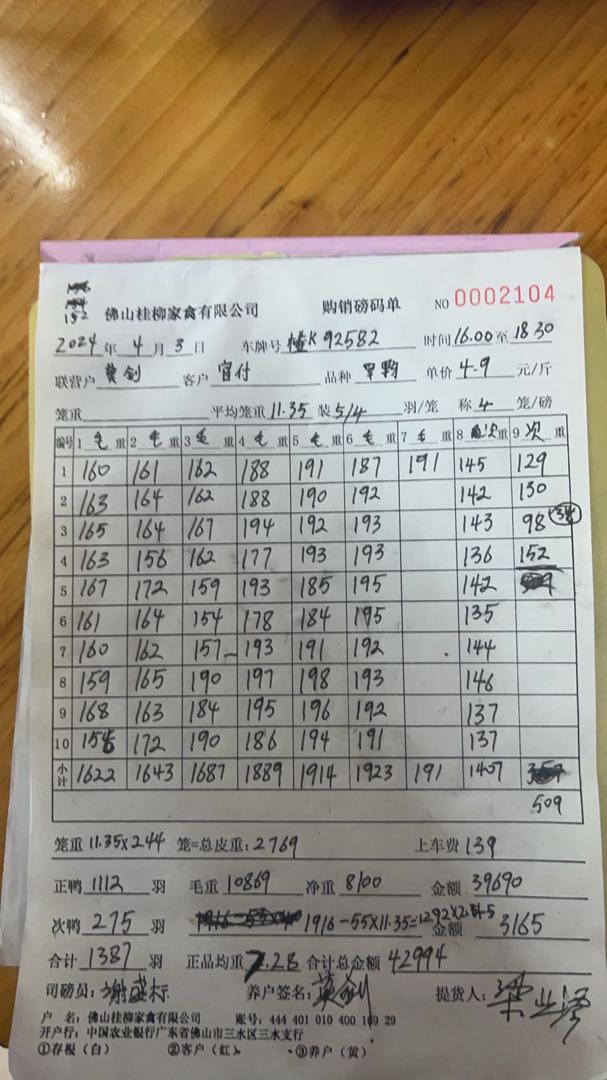 佛山桂柳家禽有限公司 购销磅码单 NO 0002104
2024年 4月 3日 车牌号 K92582 时间 16.00至 18 30
联营户 莫剑 客户 官付 品种 单价 4.9 元/斤
笼重 平均笼重 11.35 装 5/4 羽/笼 称 4 笼/磅
编号 1 毛 重 2 毛 重 3 毛 重 4 毛 重 5 毛 重 6 毛 重 7 毛 重 8 次 重 9 次 重
1 160 161 162 188 191 187 191 145 129
2 163 164 162 188 190 192 142 130
3 165 164 167 194 192 193 143 98
4 163 156 162 177 193 193 136 152
5 167 172 159 193 185 195 142
6 161 164 154 178 184 195 135
7 160 162 157 193 191 192 144
8 159 165 190 197 198 193 146
9 168 163 184 195 196 192 137
10 156 172 190 186 194 191 137
小计 1622 1643 1687 1889 1914 1923 191 1407
509
笼重 11.35×244 笼=总皮重: 2769 上车费 139
正鸭 1112 羽 毛重 10869 净重 8100 金额 39690
次鸭 275 羽 1916-55×11.35=1292×2.45 金额 3165
合计 1387 羽 正品均重 7.28 合计总金额 42994
司磅员: 谢盛标 养户签名: 莫剑 提货人: 梁
户 名: 佛山桂柳家禽有限公司 账号: 444 401 010 400 169 29
开户行: 中国农业银行广东省佛山市三水区三水支行
①存根(白) ②客户(红) ③养户(黄)